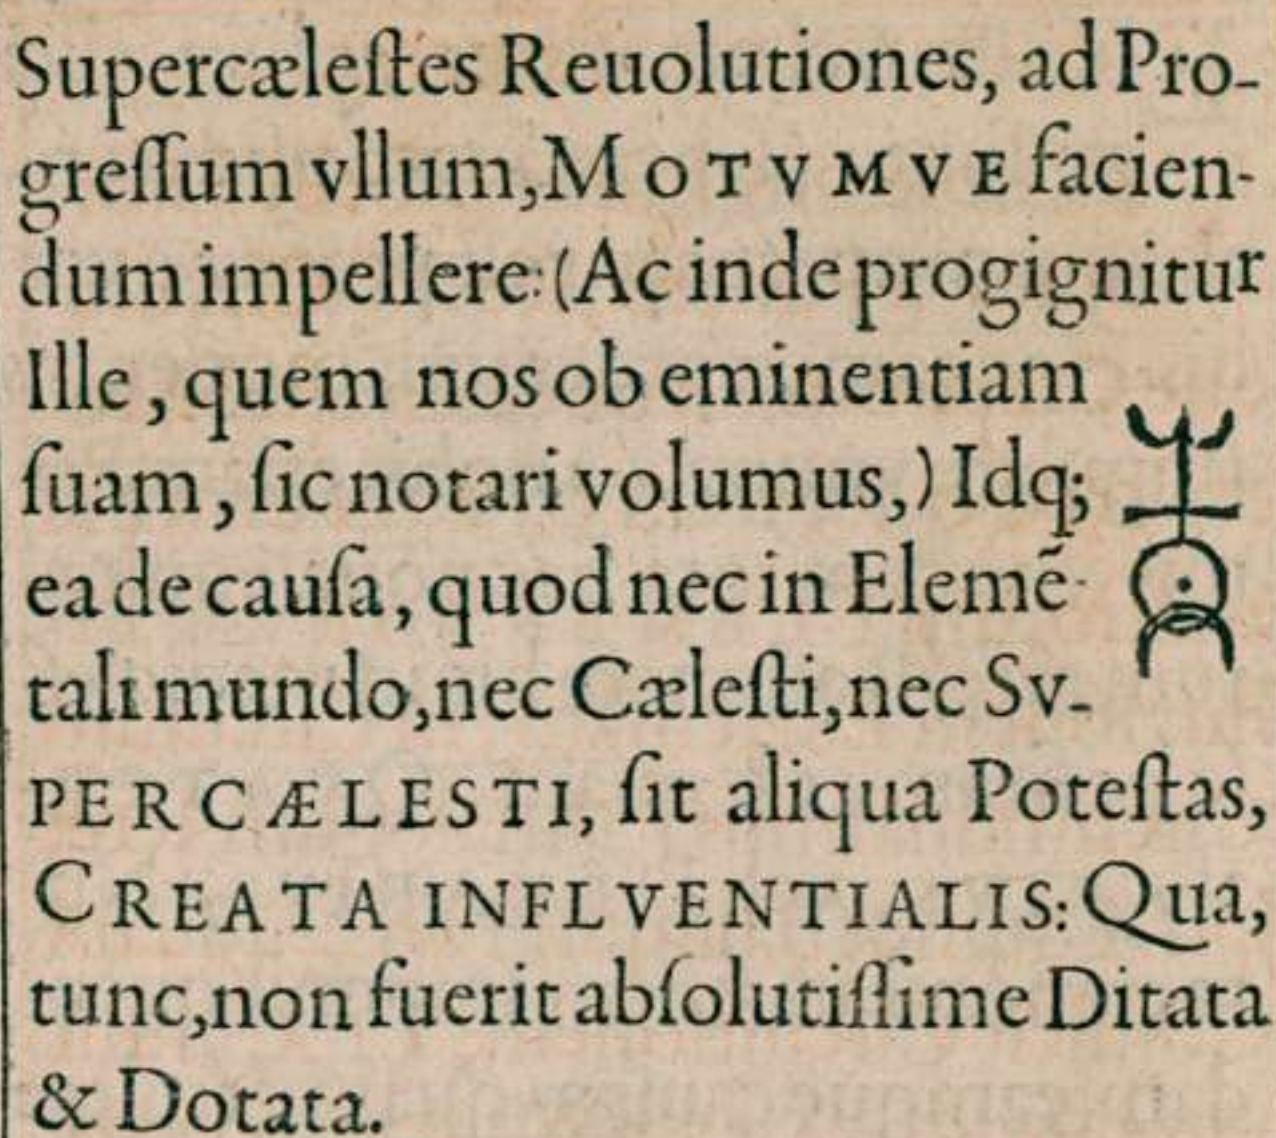 Supercæleſtes Reuolutiones, ad Pro-
greſſum vllum, MOTVMVE facien-
dum impellere: (Ac inde progignitur
Ille, quem nos ob eminentiam
ſuam, ſic notari volumus,) Idq;
ea de cauſa, quod nec in Elemẽ-
tali mundo, nec Cæleſti, nec SV-
PERCÆLESTI, ſit aliqua Poteſtas,
CREATA INFLVENTIALIS: Qua,
tunc, non fuerit abſolutiſſime Ditata
& Dotata.